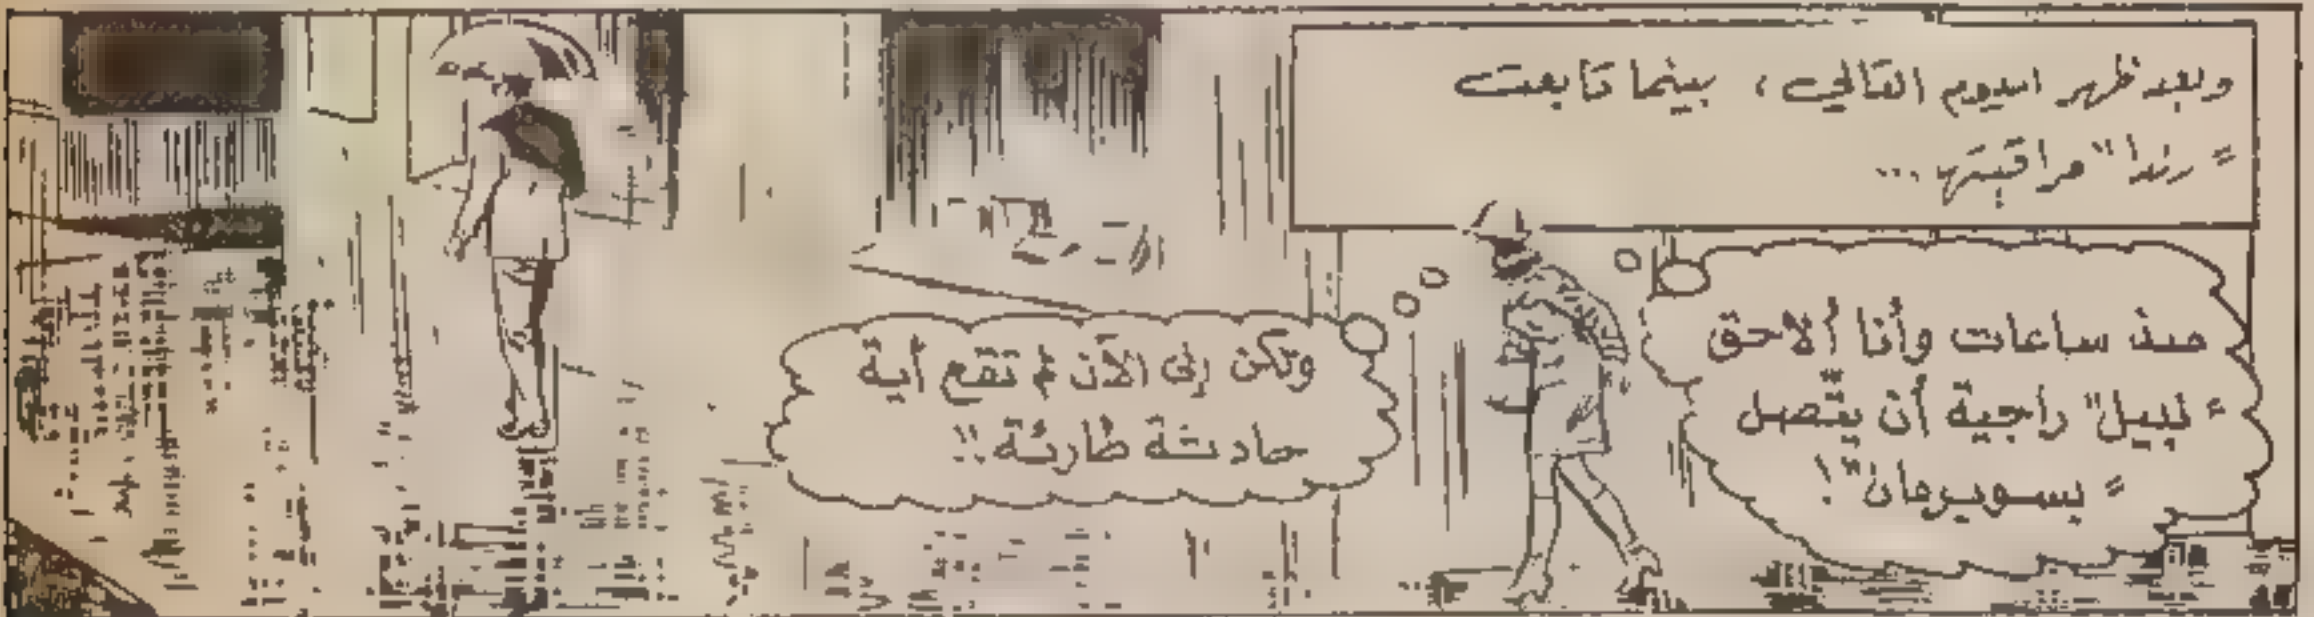 وبعد ظهر اليوم التالي، بينما تابعت
"رندا" مراقبتها ...
منذ ساعات وأنا ألاحق
"نبيل" راجية أن يتّصل
"بسوبرمان"!
ولكن إلى الآن لم تقع أية
حادثة طارئة!!